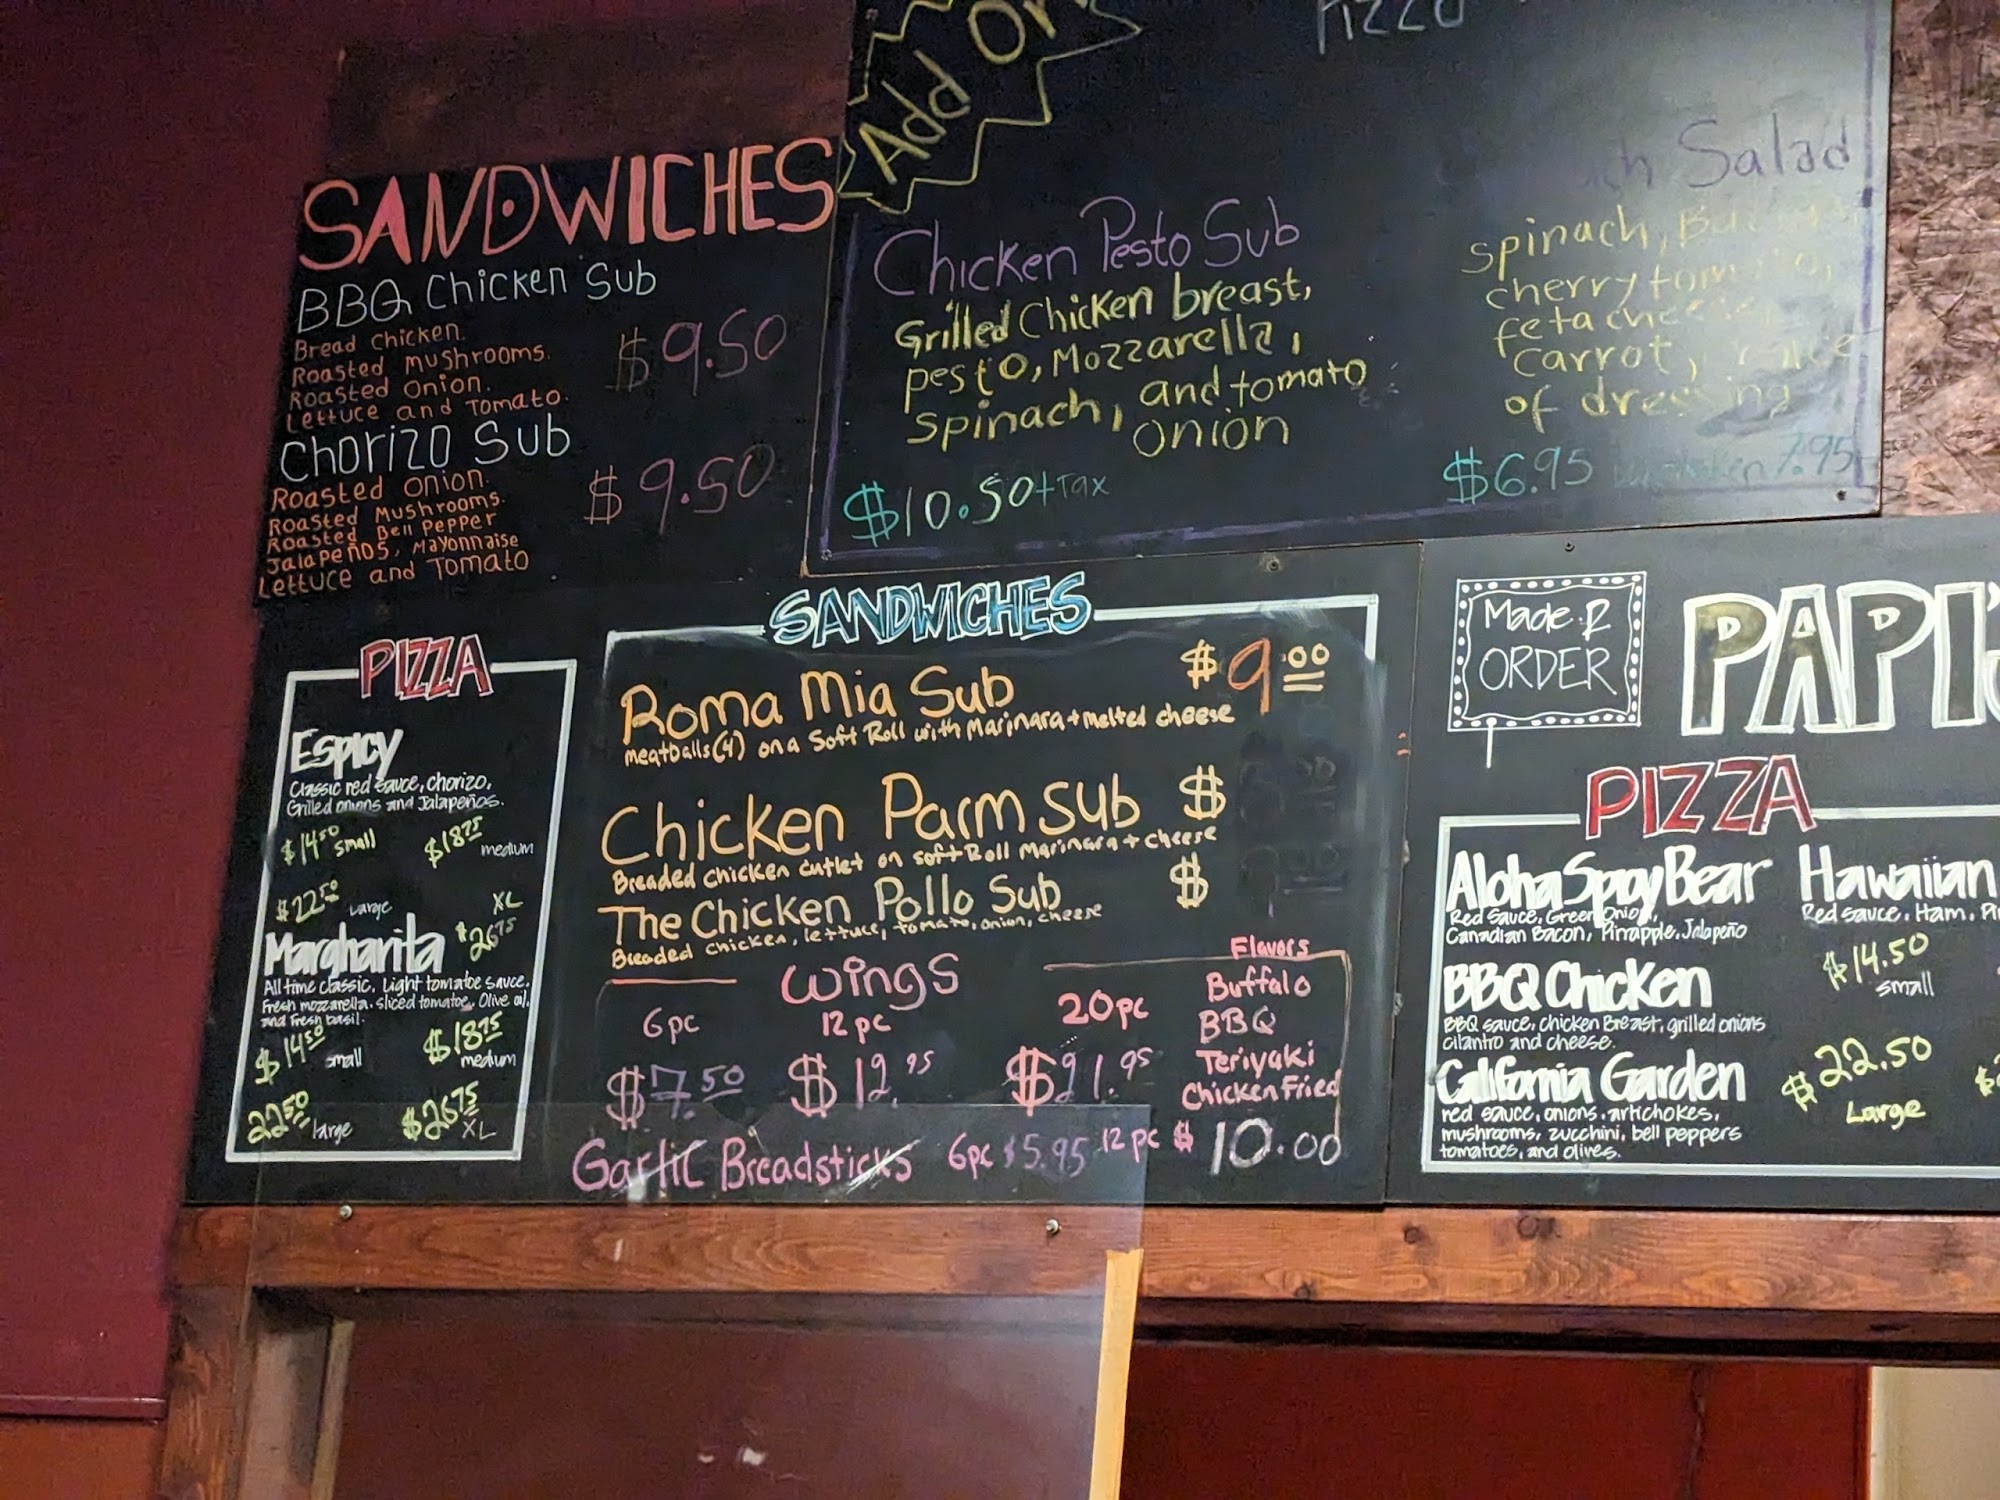 Add On
SANDWICHES
BBQ Chicken Sub
Bread Chicken.
Roasted Mushrooms.
Roasted Onion.
Lettuce and Tomato.
$9.50
Chorizo Sub
Roasted Onion.
Roasted Mushrooms.
Roasted Bell Pepper
Jalapeños, Mayonnaise
Lettuce and Tomato
$9.50
Chicken Pesto Sub
Grilled Chicken breast,
pesto, Mozzarella,
spinach, and tomato
onion
$10.50+Tax
Salad
spinach,
cherry
feta
carrot,
of dressing
$6.95 7.95
PIZZA
Espicy
Classic red sauce, chorizo,
Grilled onions and Jalapeños.
$14.50 small $18.75 medium
$22.50 Large XL
$26.75
Margharita
All time classic, Light tomatoe sauce,
Fresh mozzarella, sliced tomatoe, Olive oil,
and fresh basil.
$14.50 small $18.75 medium
22.50 large $26.75 XL
SANDWICHES
Roma Mia Sub $9.00
meatballs(4) on a Soft Roll with Marinara + melted cheese
Chicken Parm Sub $
Breaded chicken cutlet on soft Roll Marinara + cheese
The Chicken Pollo Sub $
Breaded chicken, lettuce, tomato, onion, cheese
Wings
6pc 12pc 20pc
$7.50 $12.95 $21.95
Flavors
Buffalo
BBQ
Teriyaki
Chicken Fried
Garlic Breadsticks 6pc $5.95 12pc $10.00
Made 2
ORDER
PAPI'
PIZZA
Aloha Spicy Bear
Red Sauce, Green Onion,
Canadian Bacon, Pinapple, Jalapeño
BBQ Chicken
BBQ sauce, chicken Breast, grilled onions
cilantro and cheese.
California Garden
red sauce, onions, artichokes,
mushrooms, zucchini, bell peppers
tomatoes, and olives.
Hawaiian
Red sauce, Ham,
$14.50
small
$22.50
Large